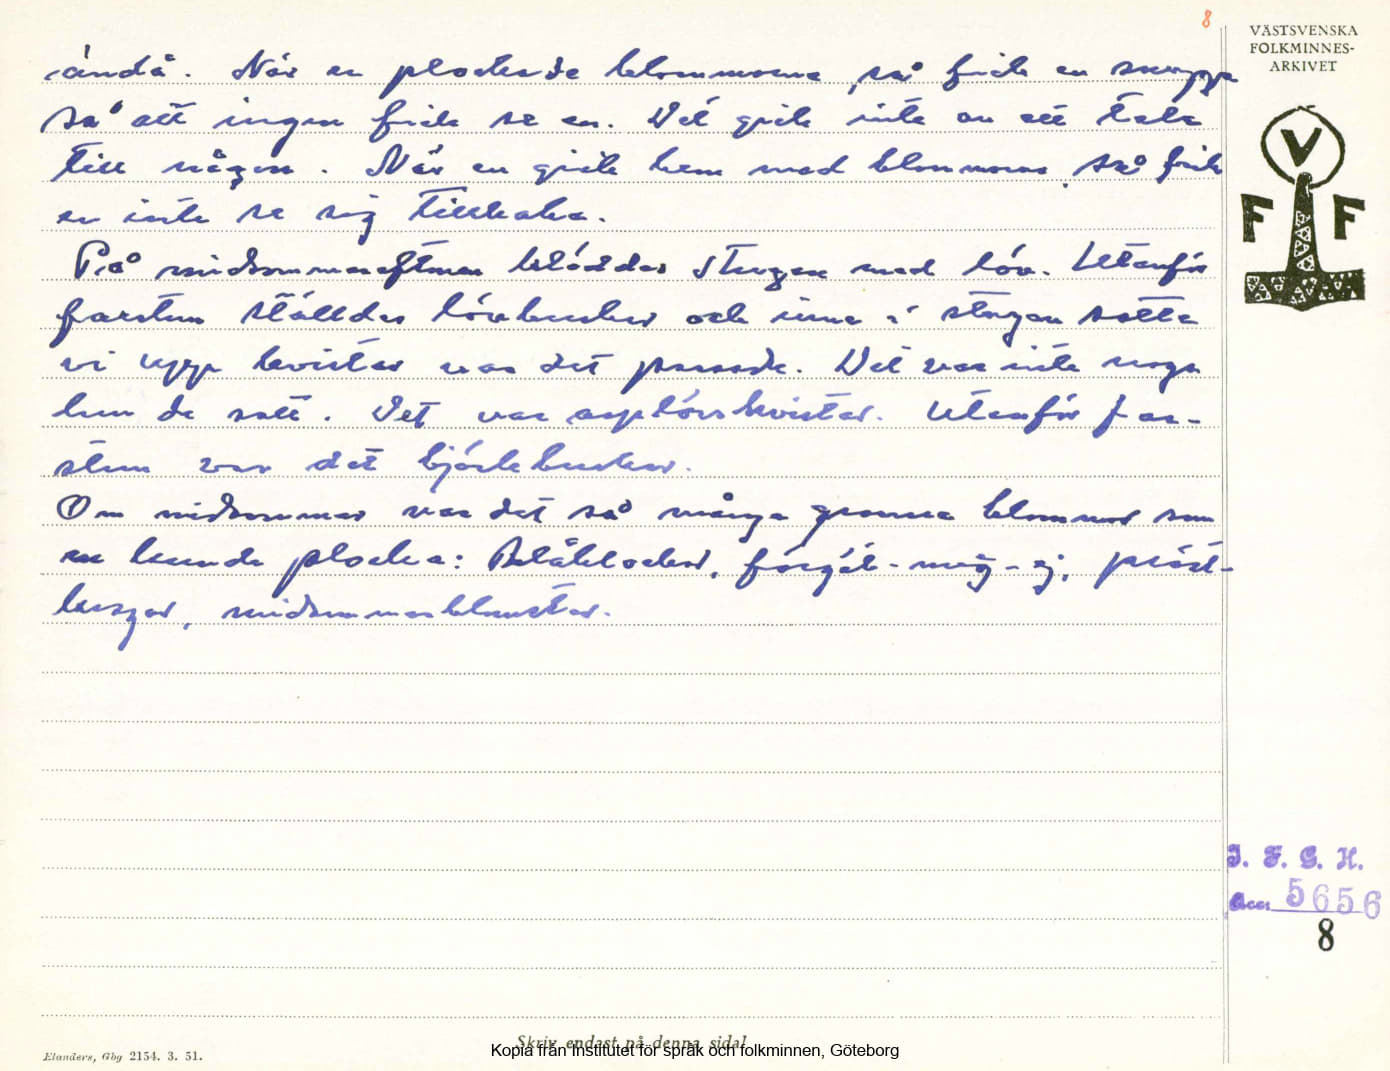 8
VÄSTSVENSKA
FOLKMINNES-
ARKIVET
ändå. När en plockade blommorna, så fick en
så att ingen fick se en. Det gick inte an att tala
till någon. När en gick hem med blommorna, så fick
en inte se sig tillbaka.
På midsommaraftonen kläddes stugan med löv. Utanför
farstun ställdes lövbuskar och inne i stugan satte
vi upp kvistar var det passade. Det var inte noga
hur de satt. Det var asplövskvistar. Utanför far-
stun var det björkbuskar.
Om midsommar var det så många granna blommor som
en kunde plocka: Blåklockor, förgät-mig-ej, präst-
kragar, midsommarblomster.
V
F F
I. F. G. H.
Acc. 5656
8
Skriv endast på denna sida!
Kopia från Institutet för språk och folkminnen, Göteborg
Elanders, Gbg 2154. 3. 51.